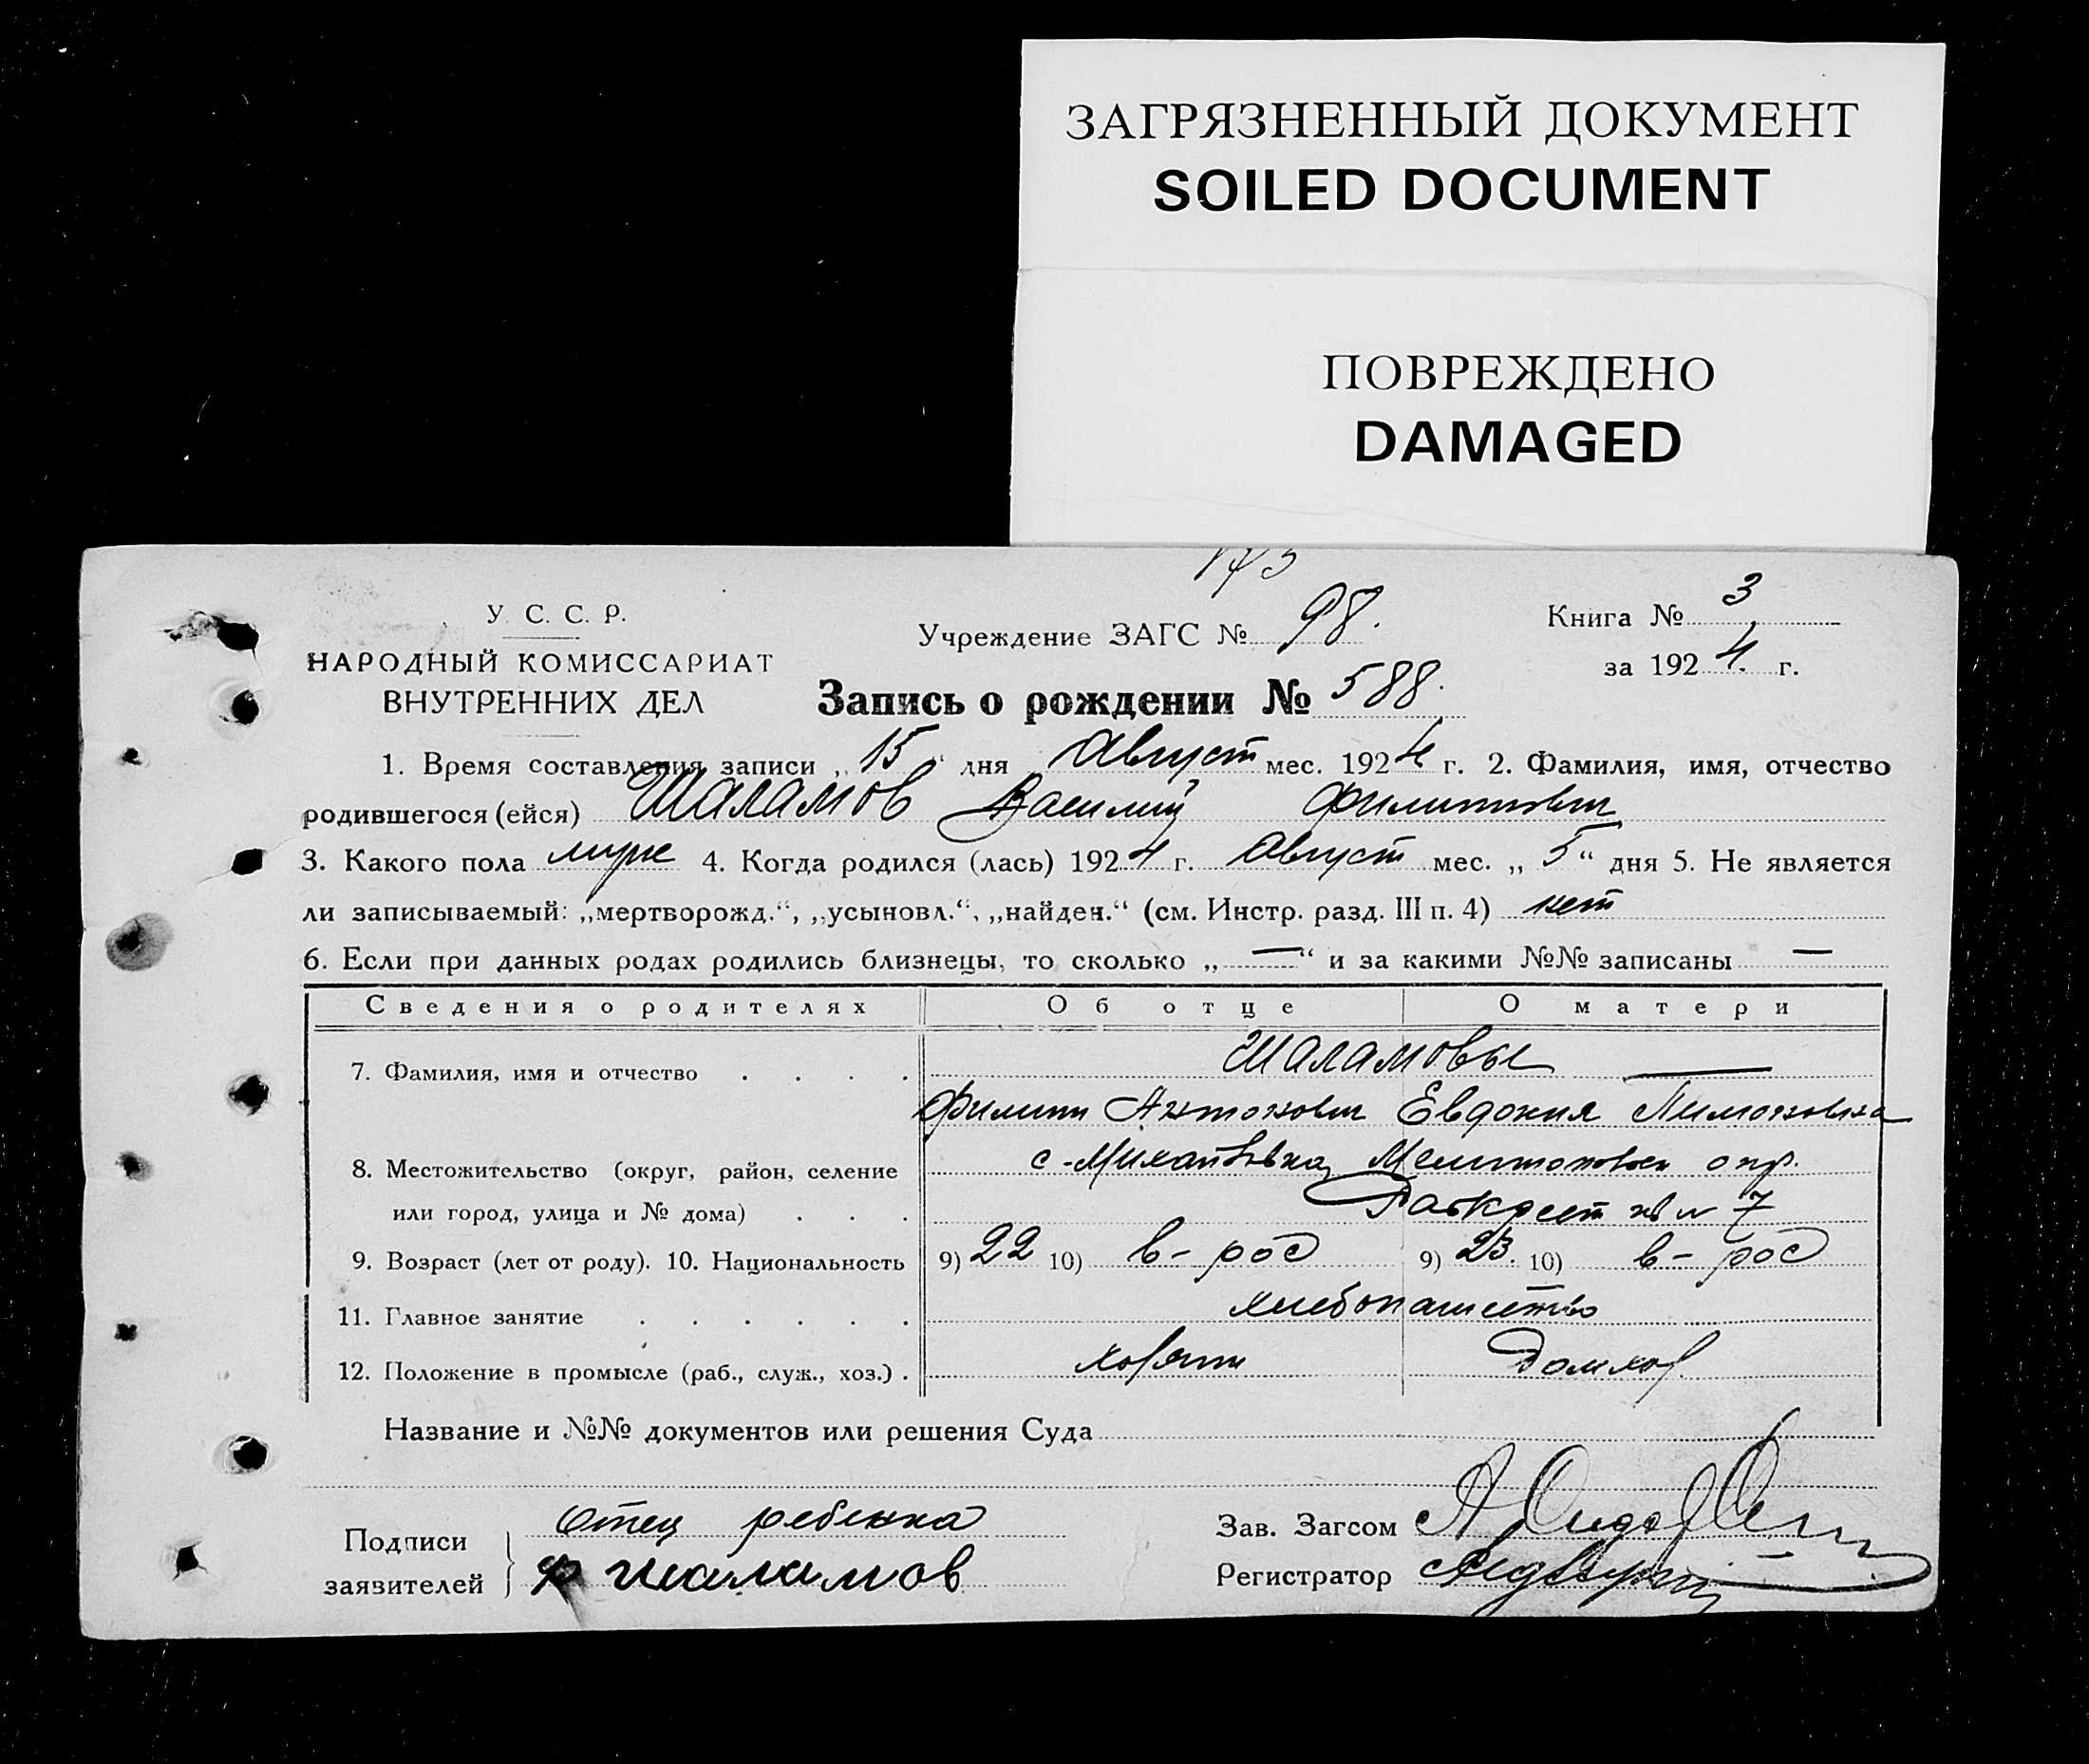 ЗАГРЯЗНЕННЫЙ ДОКУМЕНТ
SOILED DOCUMENT
ПОВРЕЖДЕНО
DAMAGED
У. С. С. Р.
НАРОДНЫЙ КОМИССАРИАТ
ВНУТРЕННИХ ДЕЛ
Учреждение ЗАГС № 98.
Книга № 3
за 1924 г.
Запись о рождении № 588.
1. Время составления записи „15“ дня Август мес. 1924 г. 2. Фамилия, имя, отчество
родившегося (ейся) Шаламов Василий Филиппович
3. Какого пола муж 4. Когда родился (лась) 1924 г. Август мес. „5“ дня 5. Не является
ли записываемый: „мертворожд.“, „усыновл.“, „найден.“ (см. Инстр. разд. III п. 4) нет
6. Если при данных родах родились близнецы, то сколько „—“ и за какими №№ записаны —
Сведения о родителях Об отце О матери
7. Фамилия, имя и отчество . . . . Шаламовы —
Филипп Антонович Евдокия
8. Местожительство (округ, район, селение с. Михайловка, окр.
или город, улица и № дома) . . . № 7
9. Возраст (лет от роду). 10. Национальность 9) 22 10) в-рос 9) 23. 10) в-рос
11. Главное занятие . . . . . . хлебопашество
12. Положение в промысле (раб., служ., хоз.) . хозяин домхоз
Название и №№ документов или решения Суда
Подписи заявителей } Отец ребенка
Ф Шаламов
Зав. Загсом
Регистратор